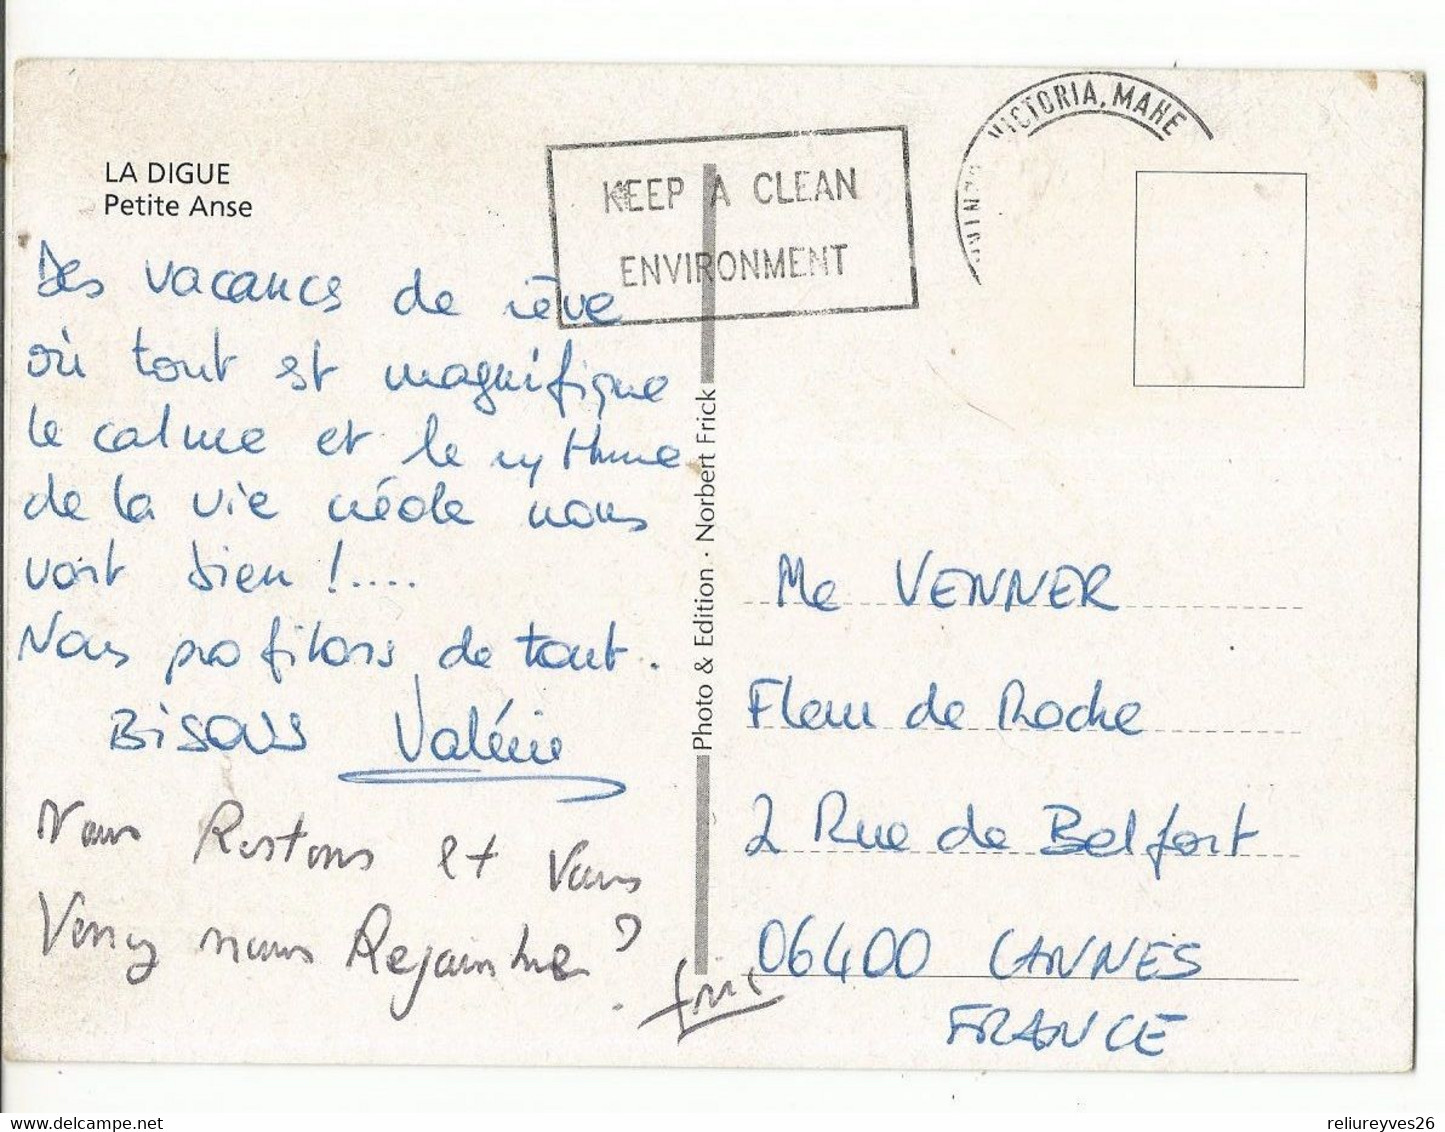 LA DIGUE
Petite Anse
KEEP A CLEAN
ENVIRONMENT
VICTORIA, MAHE
Des vacances de rêve
où tout est magnifique
le calme et le rythme
de la vie créole nous
vont bien !....
Nous profitons de tout.
BISOUS Valérie
Nous Restons et Vous
Venez nous Rejoindre ?
Photo & Edition · Norbert Frick
Me VENNER
Fleur de Roche
2 Rue de Belfort
06400 CANNES
FRANCE
delcampe.net
reliureyves26